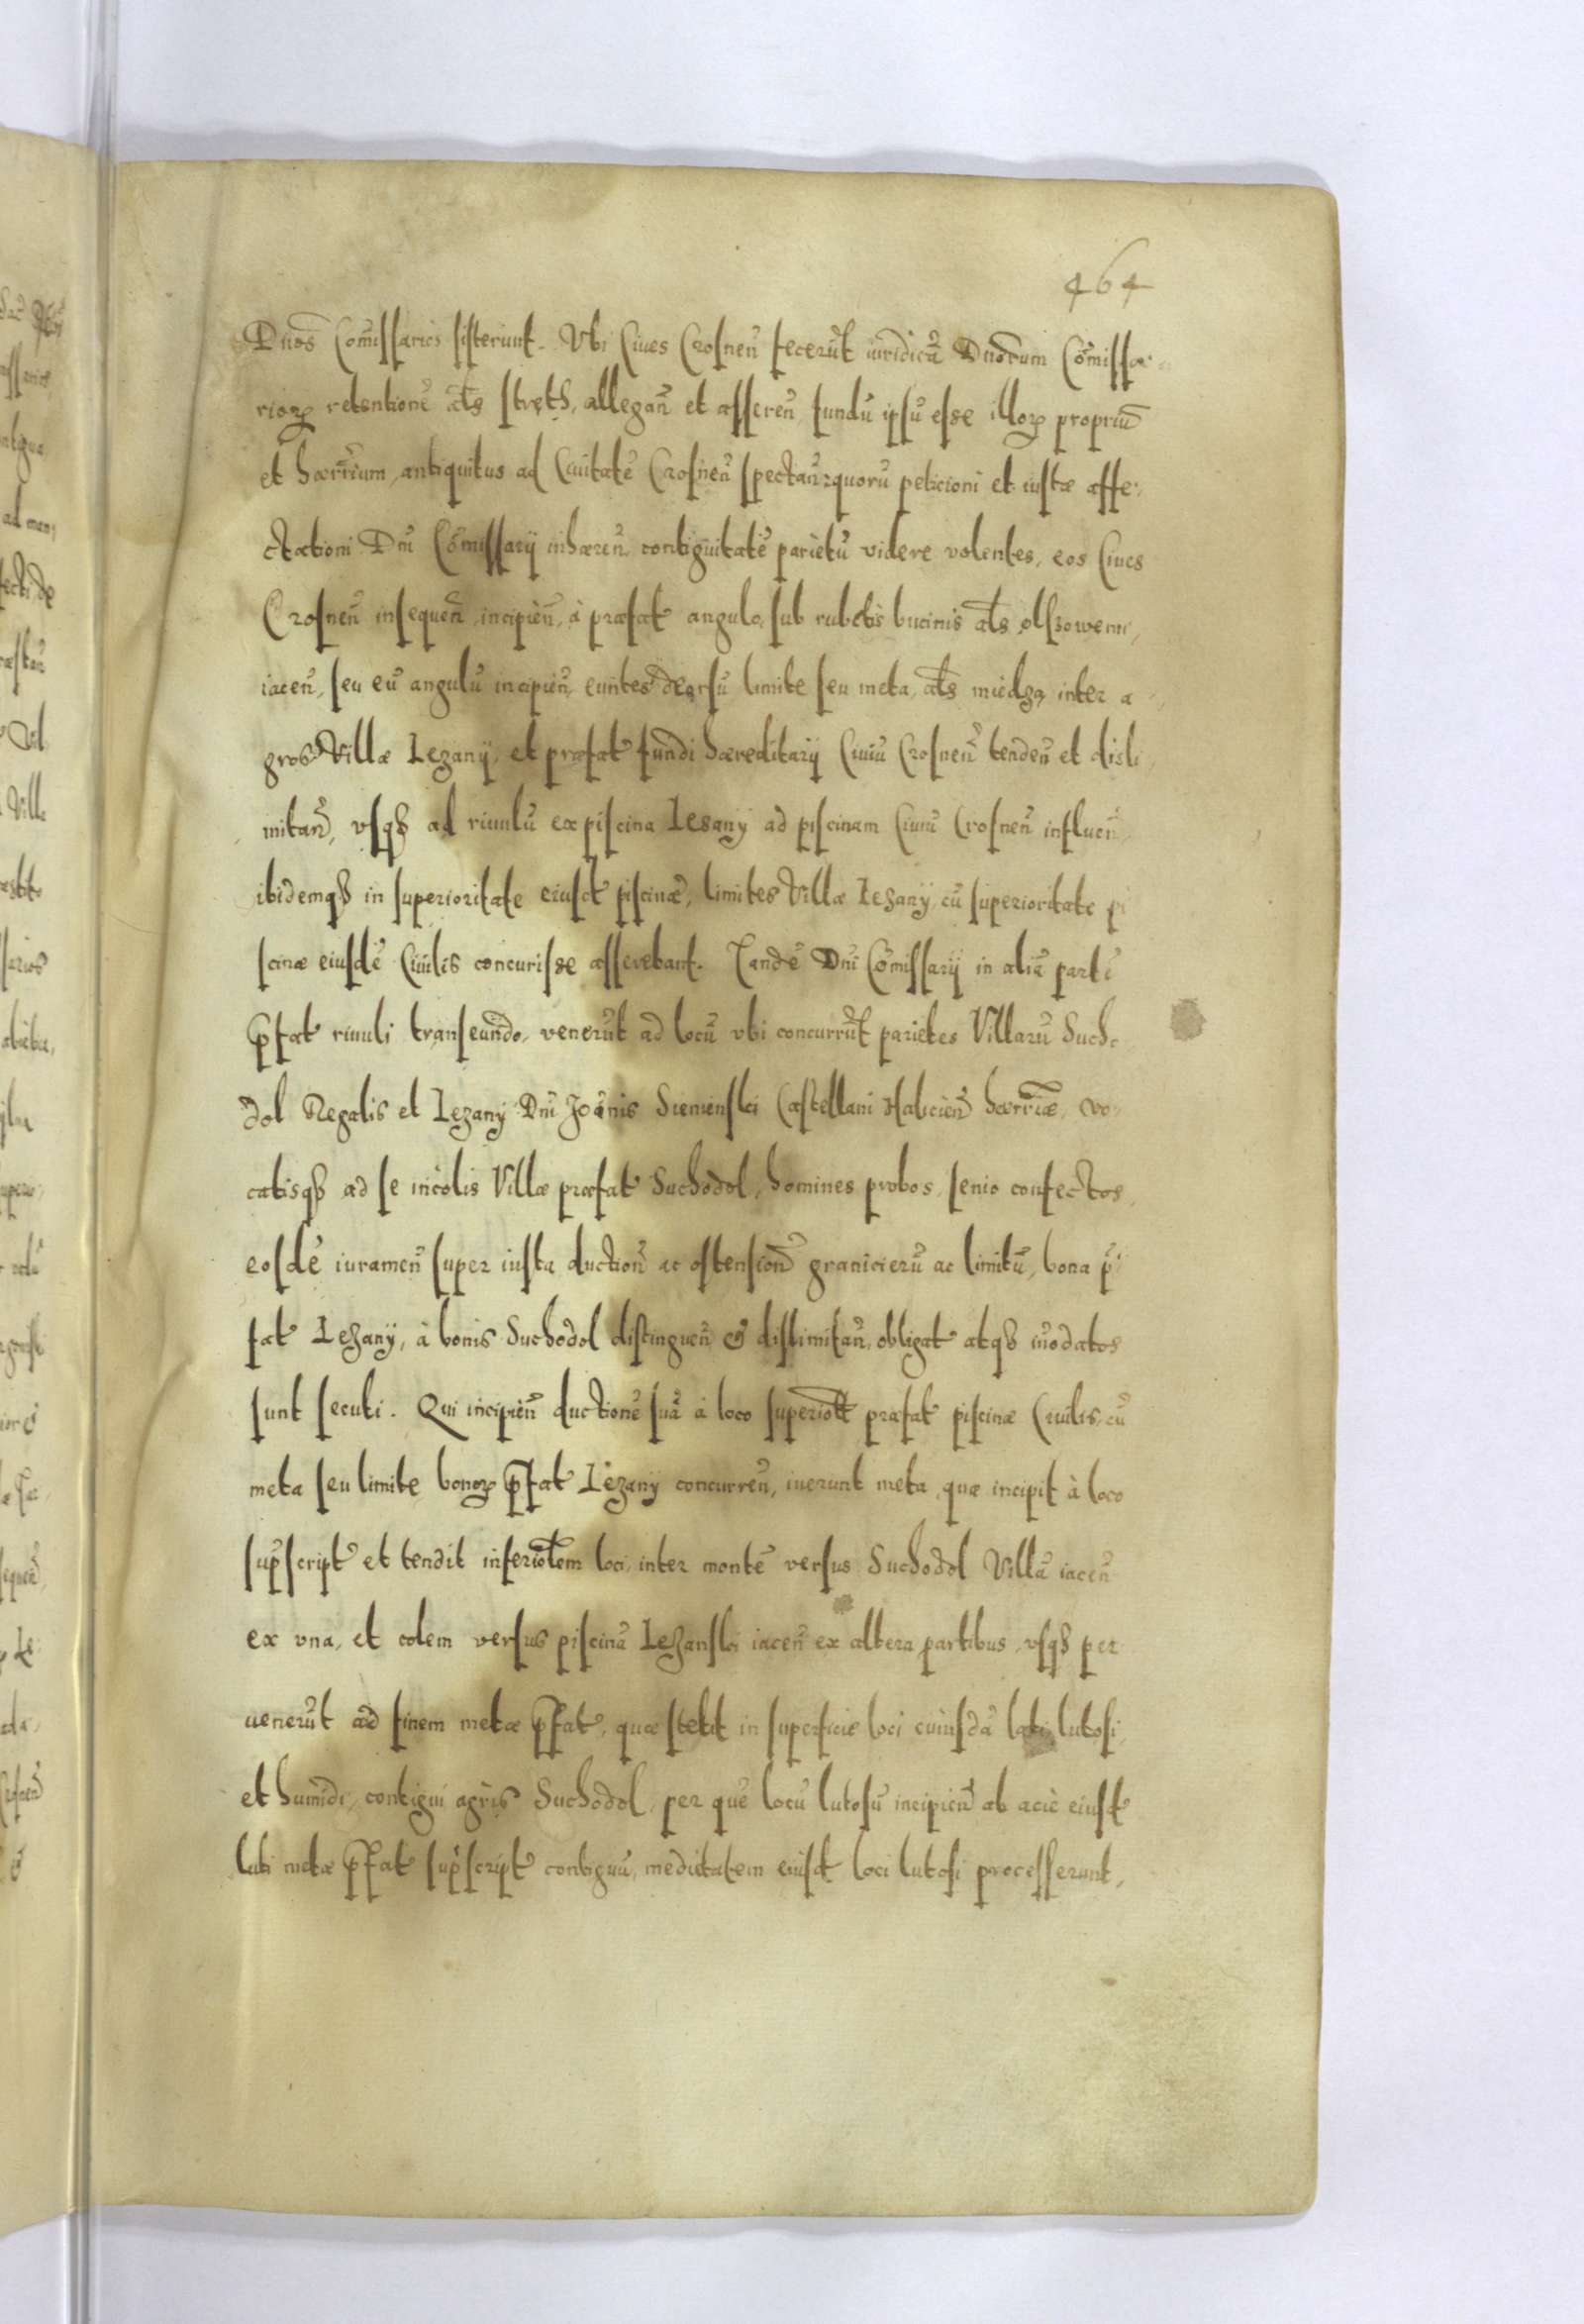 464
Dnos Com̃issarios sisterunt. Vbi Ciues Crosneñ fecerũt iuridicã Dnorum Com̃issa-
rioꝝ retentionẽ ał̃s stręth, allegañ et assereñ, fundũ ipsũ esse illoꝝ propriũ
et hærr̃ium, antiquitus ad Ciuitatẽ Crosneñ spectañ, quorũ peticioni et iustæ affe-
ctationi Dni Com̃issarij inhæreñ, contiguitatẽ parietũ videre volentes, eos Ciues
Crosneñ insequeñ, incipieñ, à præfat̃ angulo, sub rubetis bucinis ał̃s olszowemi,
iaceñ, seu eũ angulũ incipieñ, euntes deorsũ limite seu meta, ał̃s miedzą inter a-
gros Villæ Lezany, et præfat̃ fundi hæreditarij Ciuiũ Crosneñ tendeñ et disli-
mitañ, vsqȝ ad riuulũ ex piscina Lesany ad piscinam Ciuiũ Crosneñ influeñ,
ibidemqȝ in superioritate eiusd̃ piscinæ, limites Villæ Lezany, cũ superioritate pi
scinæ eiusdẽ Ciuilis concurisse asserebant. Tandẽ Dni Com̃issarij in aliã partẽ
p̃fat̃ riuuli transeundo, venerũt ad locũ vbi concurrũt parietes Villarũ Sucho
dol Regalis et Lezany Dni Joãnis Siemienski Castellani Halicieñ hærriæ, vo-
catisqȝ ad se incolis Villæ præfat̃ Suchodol, homines probos, senio confectos,
eosdẽ iurameñ super iusta ductioñ ac ostensioñ granicierũ ac limitũ, bona p̃
fat̃ Lezany, à bonis Suchodol distingueñ & dislimitañ, obligat̃ atqȝ iñodatos
sunt secuti. Qui incipieñ ductionẽ suã à loco superiori præfat̃ piscinæ Ciuilis, cũ
meta seu limite bonoꝝ p̃fat̃ Lezany concurreñ, iuerunt meta, quæ incipit à loco
supscript̃ et tendit inferiorem loci, inter montẽ versus Suchodol Villã iaceñ
ex vna, et colem versus piscinã Lezanski iaceñ ex altera partibus, vsqȝ per
uenerũt ad finem metæ p̃fat̃, quæ stetit in superficie loci cuiusdã lati, lutosi,
et humidi, contigui agris Suchodol, per quẽ locũ lutosũ incipieñ ab acie eiusd̃
luti metæ p̃fat̃ supscript̃ contiguũ, medietatem eiusd̃ loci lutosi processerunt,